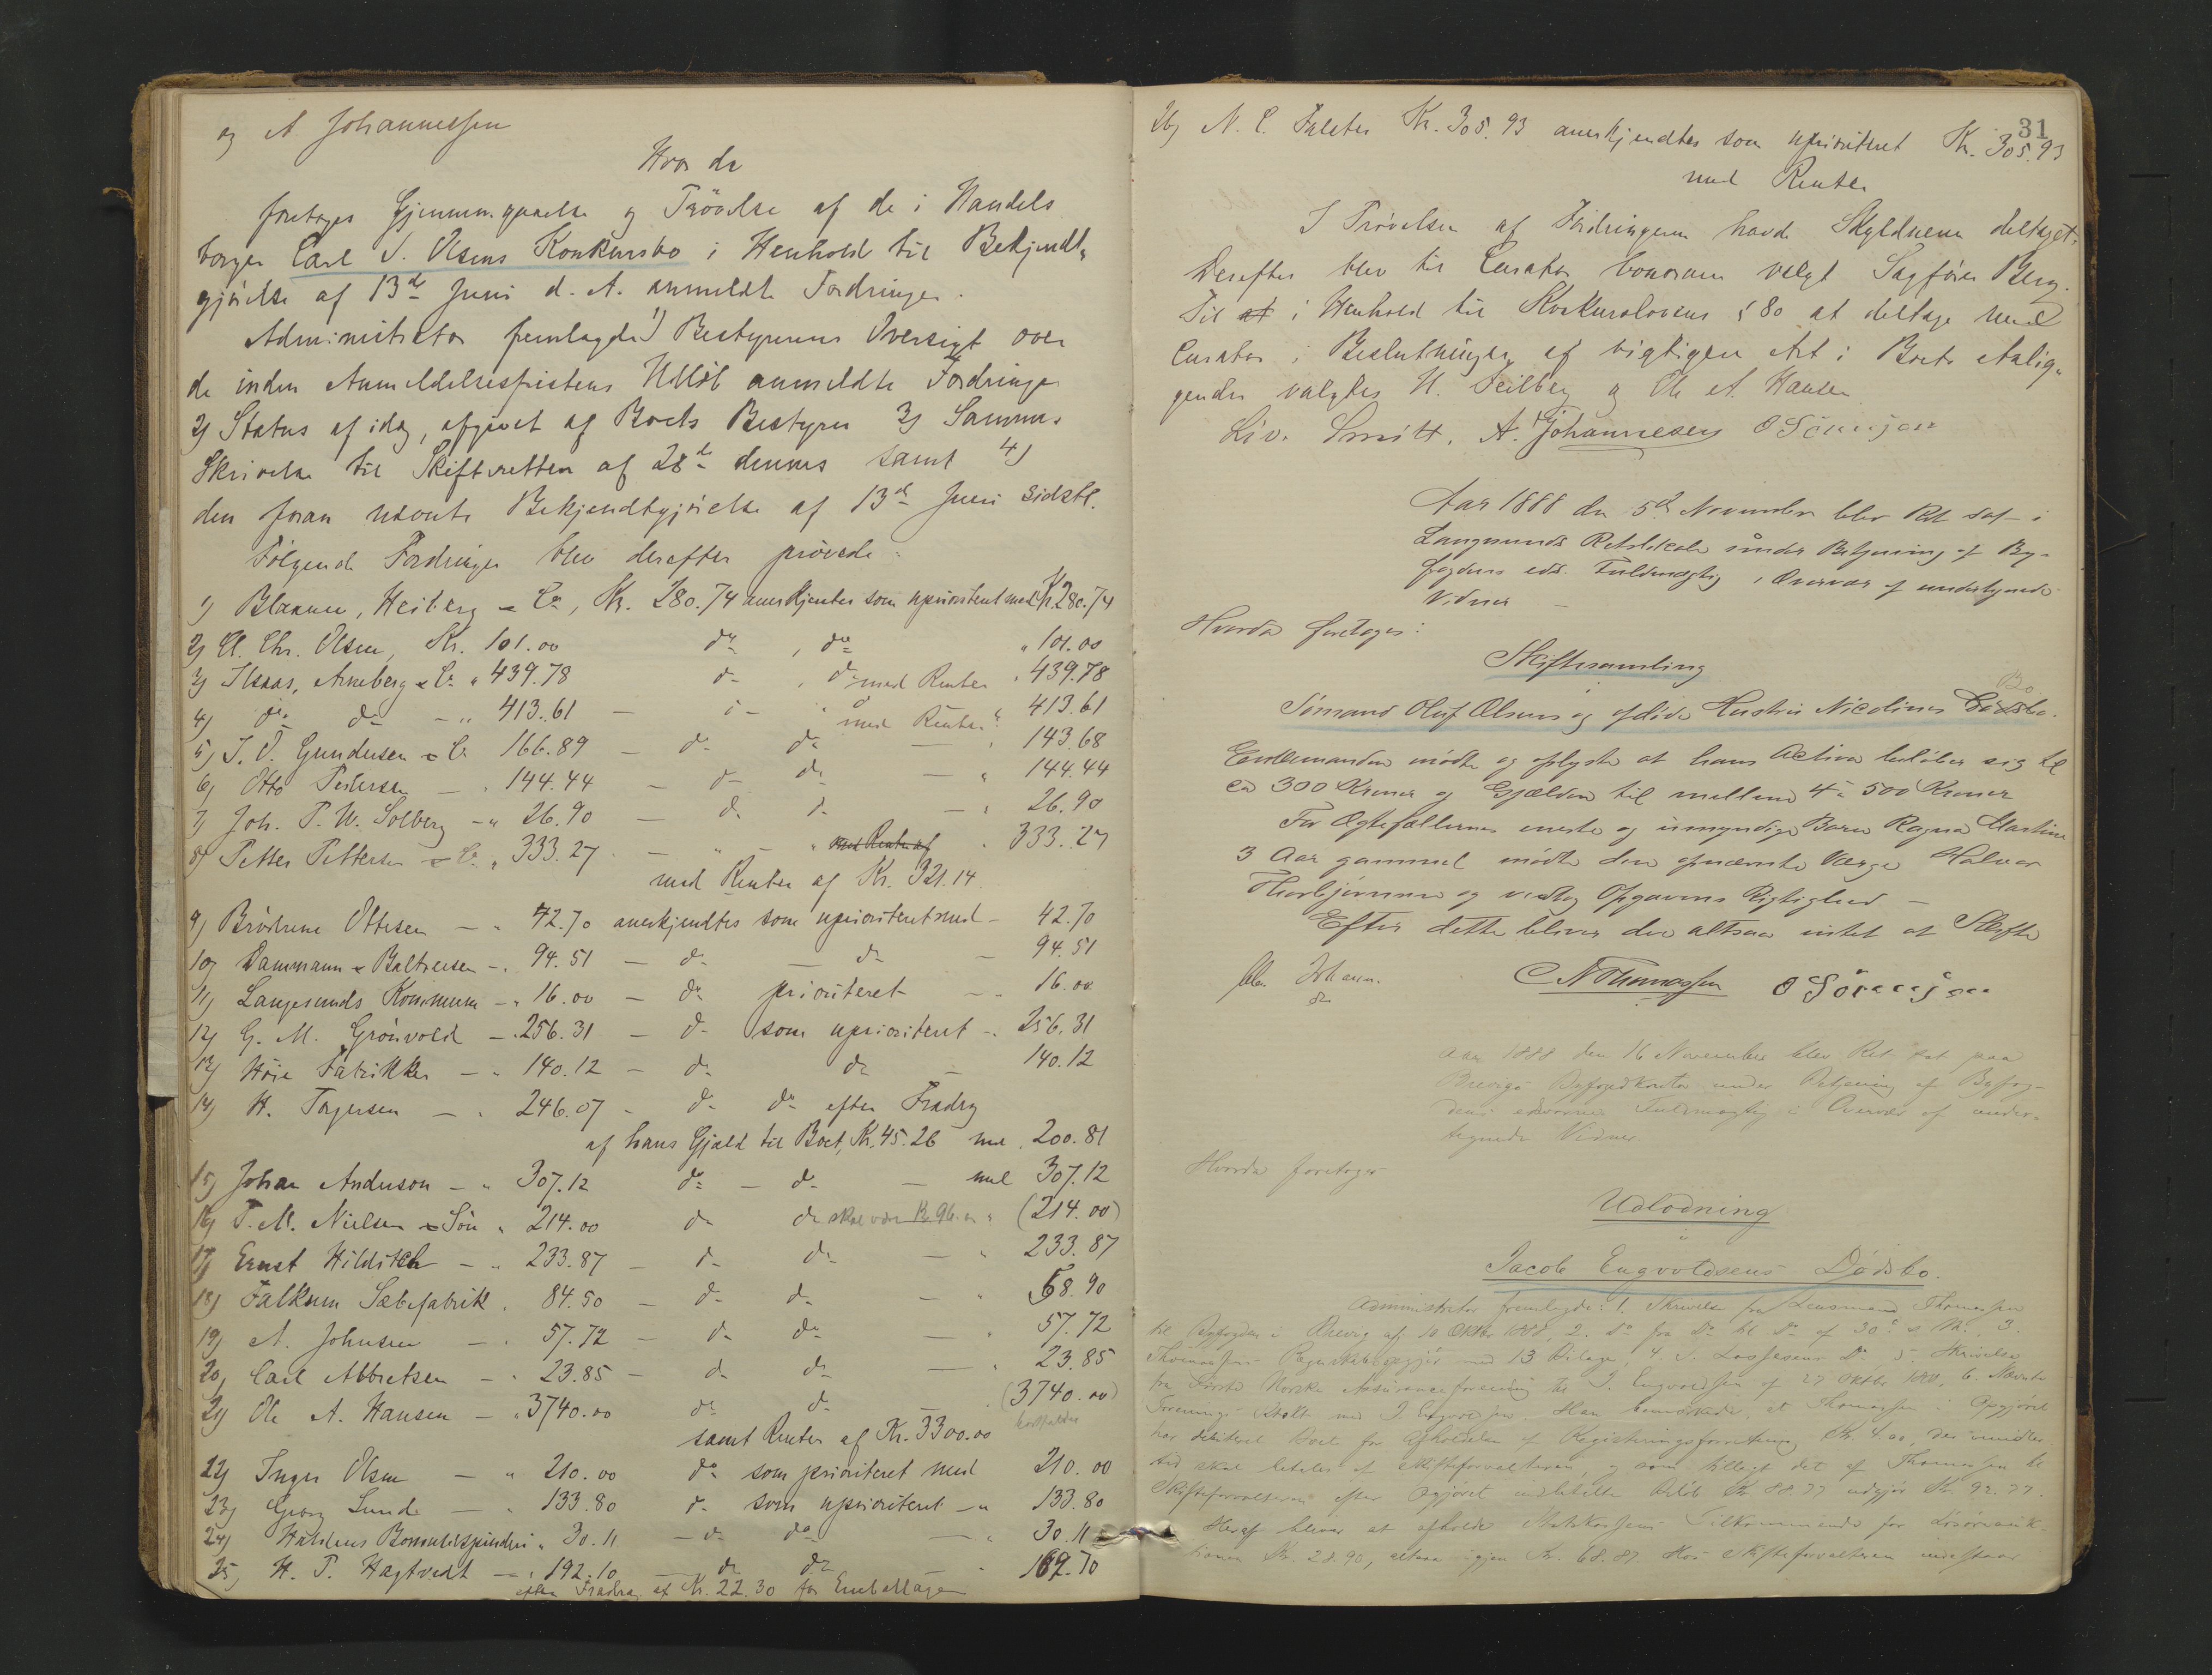 og A Johannessen
Hvor da
foretoges Gjennemgaaelse og Prøvelse af de i Handels
borger Carl S. Olsens Konkursbo i Henhold til Bekjendt„
gjørelse af 13de Juni d. A. anmeldte Fordringer.
Administrator fremlagde 1) Bestyrerens Oversigt over
de inden Anmeldelsesfristens Udløb anmeldte Fordringer
2) Status af idag, afgivet af Boets Bestyrer 3) Sammes
Skrivelse til Skifteretten af 28de dennes samt 4)
den foran nævnte Bekjendtgjørelse af 13de Juni sidstl.
Følgende Fordringer blev derefter prøvede:
1) Blaauw, Heiberg & Co, Kr. 280.74 anerkjentes som uprioritert med Kr. 280.74
2) Cl. Chr. Olsen, Kr. 101.00 do , do „ 101.00
3) Isaas, Arneberg & Co „ 439.78 do , do med Renter „ 439.78
4) do do - „ 413.61 — do — med Renter „ 413.61
5) J. O. Gundersen & Co 166.89 — do do — „ 143.68
6) Otto Pedersen — „ 144.44 — do do — „ 144.44
7) Joh. P. W. Solberg — „ 26.90 — do do — „ 26.90
8) Petter Pettersen & Co. „ 333.27 — „ — „ med Rente af „ 333.27
med Renter af Kr. 321.14.
9) Brødrene Ottesen — „ 42.70 anerkjendtes som uprioritert med — 42.70
10) Dammann & Baltzersen — „ 94.51 — do — do — 94.51
11) Langesunds Kommune — „ 16.00 — do prioriteret — „ 16.00
12) G. M. Grönvold — „ 256.31 — do som uprioriteret — „ 256.31
13) Høie Fabrikker — „ 140.12 — do do — 140.12
14) H. Tagersen — „ 246.07 - do do efter Fradrag
af hans Gjæld til Boet, Kr. 45.26 med „ 200.81
15) Johan Anderson — „ 307.12 do — do — med 307.12
16) P. M. Nielsen & Søn „ 214.00 do do skal være Kr 96.00 „ (214.00)
17) Ernst Hilditch — „ 233.87 — do do — „ 233.87
18) Falkum Sæbefabrik „ 84.50 — do do — „ 68.90
19) A. Johnsen — „ 57.72 — do do — „ 57.72
20) Carl Abbretsen — „ 23.85 — do do — „ 23.85
21) Ole A. Hansen — „ 3740.00 do do — (3740.00)
samt Renter af Kr. 3300.00 bortfalder
22) Inger Olsen — „ 210.00 do som prioriteret med 210.00
23) Georg Lunde — „ 133.80 do som uprioriteret — „ 133.80
24) Haldens Bomuldspinderi „ 30.11 — do do — „ 30.11
25) H. P. Hagtvedt — „ 192.10 — do do — „ 169.70
efter Fradrag af Kr. 22.30 for Emballage
31
26) N. C. Kr. 305.93 anerkjendtes som uprioriteret Kr. 305.93
med Renter
I Prøvelsen af Fordringerne havde Skyldneren deltaget.
Derefter blev til Curator bonorum valgt Sagfører Berg.
Til at i Henhold til Konkurslovens § 80 at deltage med
Curator i Beslutninger af vigtigere Art i Boets Anlig„
gender valgtes H. Feilberg og Ole A. Hansen
Liv. Smitt. A. Johannesen O Sörensen
Aar 1888 den 5te November blev Ret sat i
Langesunds Retslokale under Betjening af By-
fogdens eds. Fuldmægtig i Overvær af undertegnede
Vidner —
Hvorda foretoges:
Skiftesamling
i
Sømand Oluf Olsens og afdøde Hustru Nicolines Dødsbo. Bo
Enkemanden mødte og oplyste at hans Activa beløber sig til
ca 300 Kroner og Gjælden til mellem 4 à 500 Kroner
For Ægtefællernes eneste og umyndige Barn Ragna Martine
3 Aar gammel mødte den opnævnte Værge Halvor
Thorbjørnsen og vedtog Opgavens Rigtighed —
Efter dette bliver der altsaa intet at Skifte
Chr. Johann. N Thomassen O Sörensen
Aar 1888 den 16 November blev Ret sat paa
Brevigs Byfogedkontor under Betjening af Byfog-
dens edsvorne Fuldmægtig i Overvær af under-
tegnede Vidner
Hvorda foretoges
Udlodning
i
Jacob Engvoldsens Dødsbo.
Administrator fremlagde: 1. Skrivelse fra Lensmand Thomassen
til Byfogden i Brevig af 10 Oktbr 1888, 2. Do fra Do til Do af 30te s. M., 3.
Thomassens Regnskabsopgjør med 13 Bilage, 4. Do, 5. Skrivelse
fra Første Norske Assuranceforening til J. Engvoldsen af 27 Oktbr, 6. Nævnte
Forenings med J. Engvoldsen. Han bemærkede, at Thomassen i Opgjøret
har debiteret Boet for Afholdelse af Registreringsforretning Kr. 4.00, der imidler-
tid skal betales af Skifteforvalteren, og som tillagt det af Thomassen til
Skifteforvalteren efter Opgjøret indbetalte Beløb Kr 88.77 udgjør Kr. 92.77.
Heraf bliver at afholde Statskassens Tilkommende for Løsøreauk-
tionen Kr. 28.90, altsaa igjen Kr. 68.87. Hos Skifteforvalteren indestaar